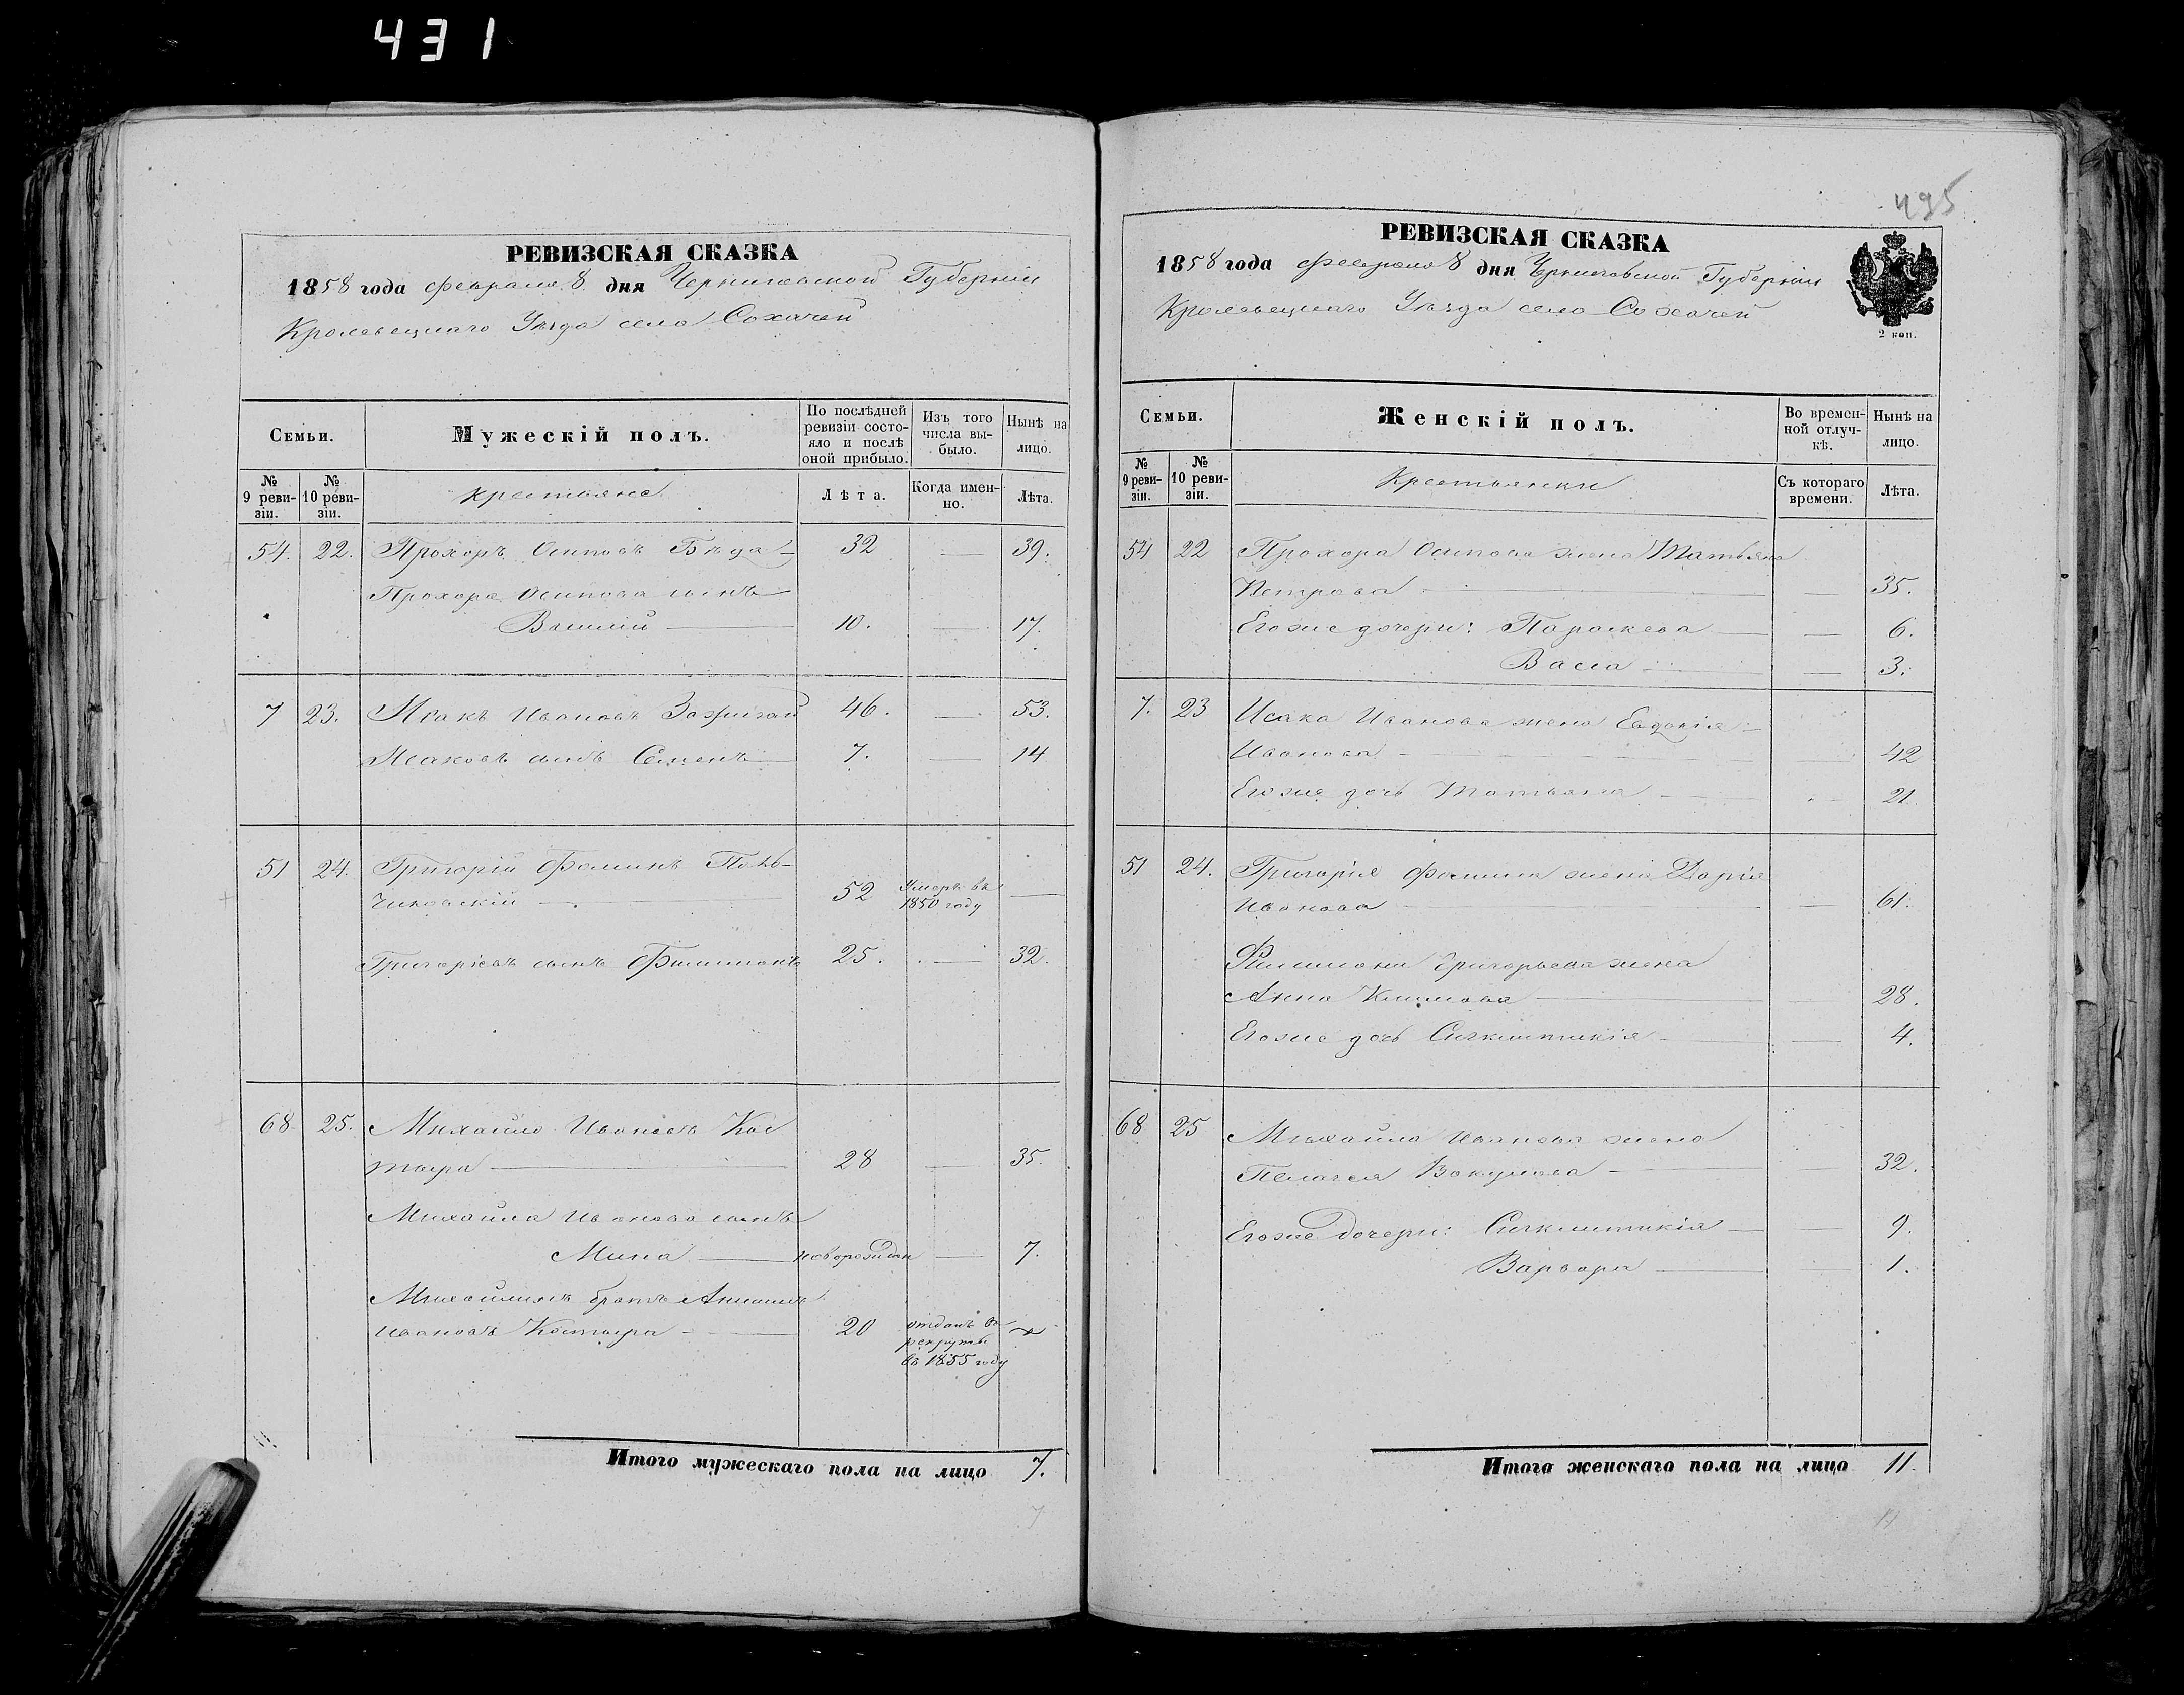 431
РЕВИЗСКАЯ СКАЗКА
1858 года февраля 8 дня Черниговской Губерніи
Кролевецкаго Уѣзда село Сохачей
Семьи.
Мужескій полъ.
По послѣдней ревизіи состояло и послѣ оной прибыло.
Изъ того числа выбыло.
Нынѣ на лицо.
№ 9 ревизіи.
№ 10 ревизіи.
крестьяне
Лѣта.
Когда именно.
Лѣта.
54. 22. Прохоръ Осиповъ Бѣда 32 — 39.
Прохора Осипова сынъ
Василій — 10. — 17.
7 23. Исакъ Ивановъ 46. — 53.
Исаковъ сынъ Семенъ 7. — 14
51 24. Григорій Фоминъ
52 Умеръ въ 1850 году —
Григорьевъ сынъ Филимонъ 25. — 32.
68 25. Михайло Ивановъ Кос
тыра — 28 — 35.
Михайла Иванова сынъ
Мина — новорожден — 7.
Михайлинъ братъ
Ивановъ Костыра — 20 отданъ въ рекруты въ 1855 году
Итого мужескаго пола на лицо 7.
7
495
РЕВИЗСКАЯ СКАЗКА
1858 года февраля 8 дня Черниговской Губерніи
Кролевецкаго Уѣзда село Сохачей
2 коп.
Семьи.
Женскій полъ.
Во временной отлучкѣ.
Нынѣ на лицо.
№ 9 ревизіи.
№ 10 ревизіи.
Крестьянки
Съ котораго времени.
Лѣта.
54 22 Прохора Осипова жена Татьяна
Петрова — — 35.
Его же дочери: Параскева — — 6.
Васса — — 3.
7. 23 Исака Иванова жена Евдокія
Иванова — — 42
Его же дочь Татьяна — — 21
51 24. Григорія Фомина жена Дарія
Иванова — — 61.
Филимона Григорьева жена
Анна Климова — 28.
Его же дочь Синклитикія — — 4.
68 25 Михайла Иванова жена
Пелагея Вакулова — — 32.
Его же дочери: Синклитикія — — 9.
Варвара — — 1.
Итого женскаго пола на лицо 11.
11